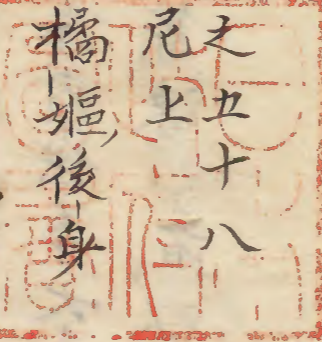 之五十八
尼上
橘嫗後身